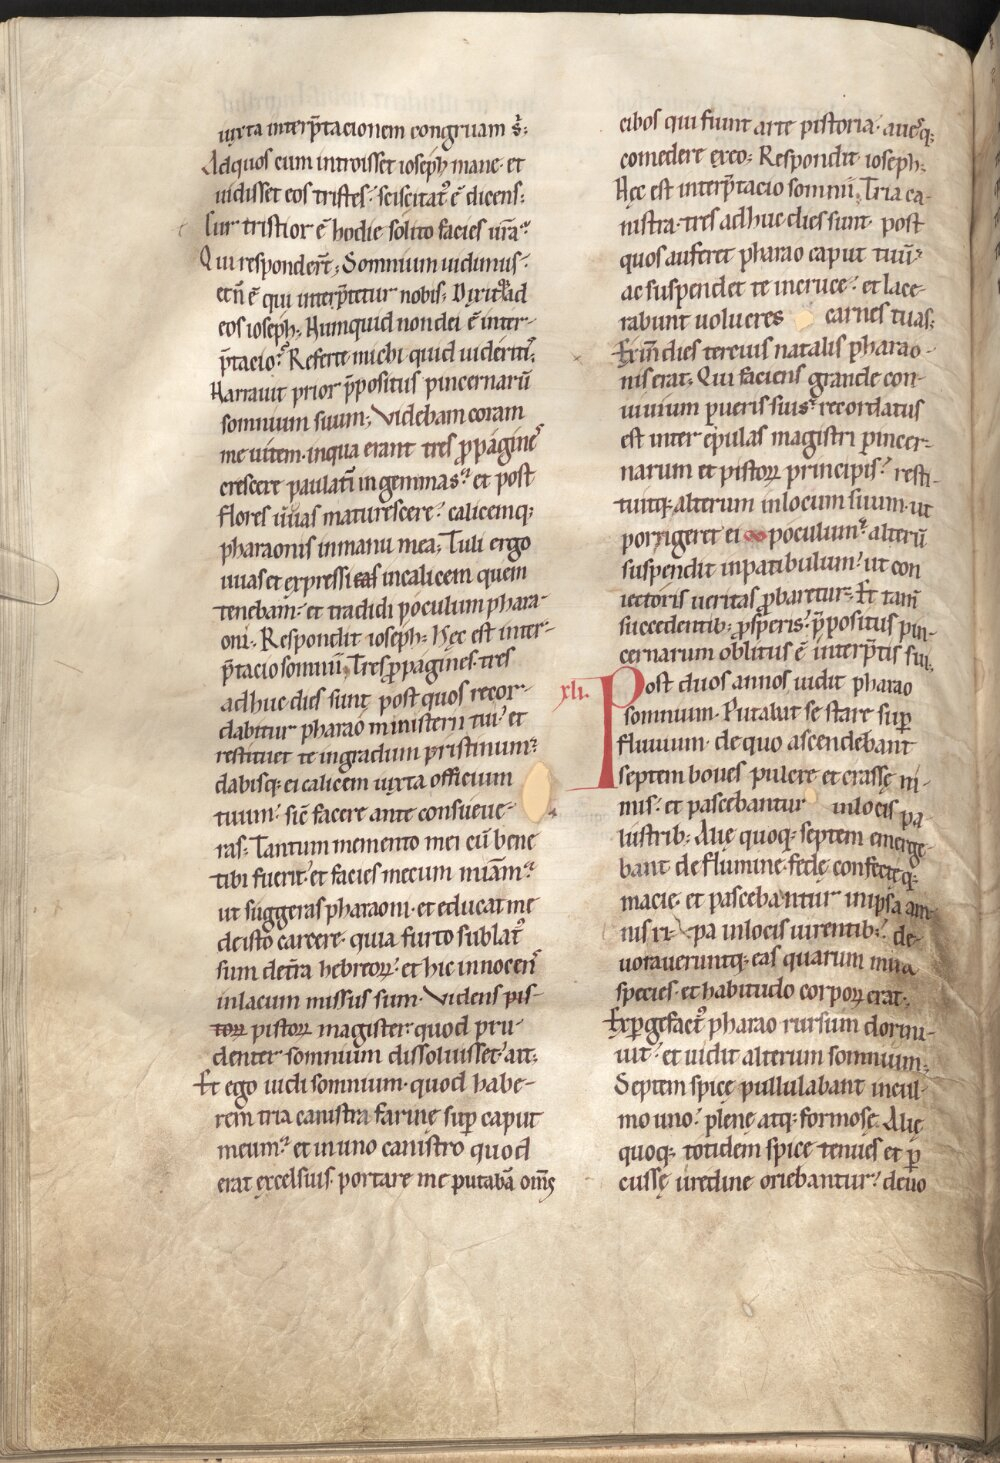 iuxta interp̄tacionem congruam s̄;
Ad quos cum introisset ioseph mane· et
uidisset eos tristes; sciscitat᷒ ē dicens;
Cur tristior ē hodie solito facies ur̄a?
Qui responder̄t; Somnium uidimus·
et n̄ ē qui interp̄tetur nobis; Dixitq; ad
eos ioseph; Numquid non dei ē inter-
p̄tacio? Referte michi quid uideritis;
Narrauit prior p̄positus pincernarū
somnium suum; Videbam coram
me uitem· in qua erant tres ꝓpagines
crescere paulatī in gemmas· et post
flores uuas maturescere· calicemq;
pharaonis in manu mea; Tuli ergo
uuas et expressi eas in calicem quem
tenebam· et tradidi poculum phara-
oni. Respondit ioseph; Hęc est inter-
p̄tacio somnii; Tres ꝓpagines· tres
adhuc dies sunt post quos recor-
dabitur pharao ministerii tui· et
restituet te in gradum pristinum·
dabisq; ei calicem iuxta officium
tuum· sic̄ facere ante consueue-
ras; Tantum memento mei cū bene
tibi fuerit· et facies mecum miām·
ut suggeras pharaoni· et educat me
de isto carcere· quia furto sublat᷒
sum de tr̄a hebreoꝝ· et hic innocens
in lacum missus sum· Videns pis-
toꝝ pistoꝝ magister quod pru-
denter somnium dissoluisset· ait;
Et ego uidi somnium· quod habe-
rem tria canistra farinę suꝑ caput
meum· et in uno canistro quod
erat excelsius· portare me putabā om̄s
cibos qui fiunt arte pistoria· auesq;
comedere ex eo; Respondit ioseph;
Hęc est interp̄tacio somnii; Tria ca-
nistra· tres adhuc dies sunt· post
quos auferet pharao caput tuū·
ac suspendet te in cruce· et lace-
rabunt uolucres carnes tuas;
Exin̄ dies tercius natalis pharao-
nis erat; Qui faciens grande con-
uiuium pueris suis· recordatus
est inter epulas magistri pincer-
narum et pistoꝝ principis· resti-
tuitq; alterum in locum suum· ut
porrigeret ei poculum· alterū
suspendit in patibulum· ut con
iectoris ueritas ꝓbaretur; Et tam̄
succedentib; ꝓsperis· p̄positus pin-
cernarum oblitus ē interp̄tis sui.
xli. Post duos annos uidit pharao
somnium· Putabat se stare suꝑ
fluuium· de quo ascendebant
septem boues pulcre et crassę ni-
mis· et pascebantur in locis pa-
lustrib; Alię quoq; septem emerge-
bant de flumine· fedę confectęq;
macie· et pascebantur in ipsa am-
nis ri-pa in locis uirentib; de-
uoraueruntq; eas quarum mira
species· et habitudo corpoꝝ erat.
Exꝑgefact᷒ pharao rursum dormi-
uit· et uidit alterum somnium;
Septem spicę pullulabant in cul-
mo uno· plenę atq; formosę. Alię
quoq; totidem spice tenues et ꝑ
cussę uredine oriebantur· deuo